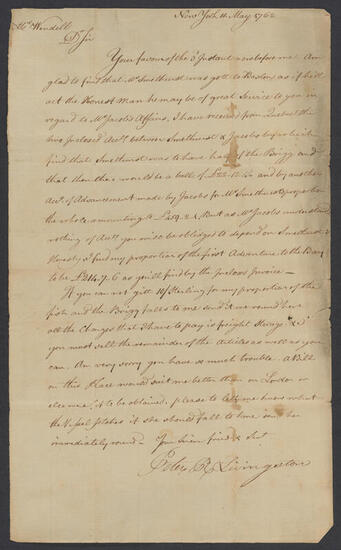 New York 11 May 1762
Mr Wendell
Dr Sir
Your favour of the 3 Instant is before me Am
glad to find that Mr Smethurst was gott to Boston as if he'll
act the Honest man he may be of great Service to you in
regard to Mr Jacobs Affairs, I have received from Quebec the
two Inclosed Accts between Smethurst & Jacobs before which
find that Smethurst was to have half of the Brigg and
that then there would be a ball of and by another
Acct of Advancement made by Jacobs for Mr Smethursts proportion
the whole amounting to But as Mr Jacobs understands
nothing of Accts you must be obliged to depend on Smethursts
Honesty I find my proportion of the first Adventure to the Bay
to be £214.7.6 as you'll find by the Inclosed Invoice —
If you can not gett 12/ Sterling for my proportion of the
fish and the Brigg falls to me send it me round here
all the Charges that I have to pay is freight Storage &c
you must sell the remainder of the Articles as well as you
can. Am very sorry you have so much trouble. A Bill
on this Place would suit me better than on London or
elsewere, if to be obtained, please to lett me know what
the Vessel fetches if she should fall to me send her
immediately round — Your Sincere friend & Servt
Peter R Livingston